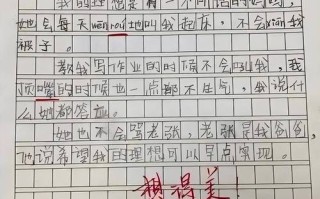 我的理想是有一个不同
她会每天wēn róu地叫我起床，不会xiān我
被子。
教我写作业的时候不会吼我，我
顶嘴的时候也一点都不生气，我说什
么她都答应。
她也不会骂老张，老张是我爸爸，
他说希望我的理想可以早点实现。
想得美！